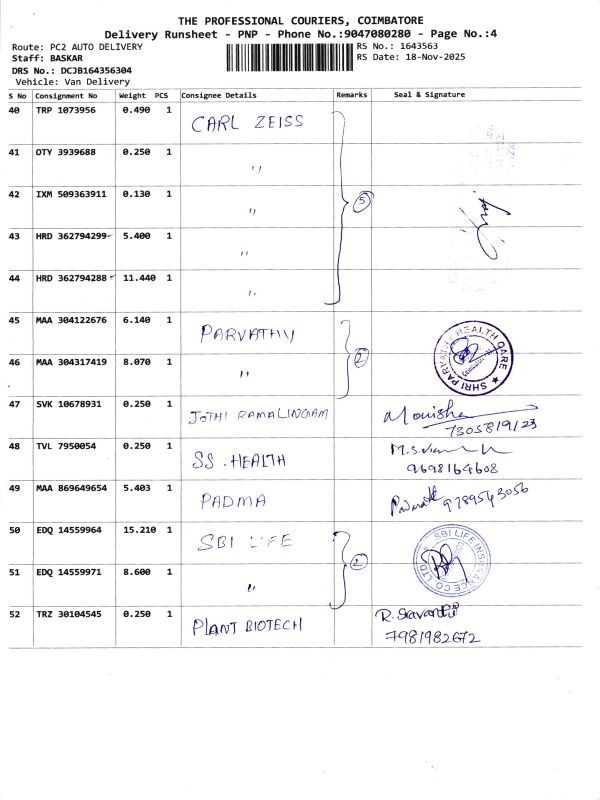 THE PROFESSIONAL COURIERS, COIMBATORE
Delivery Runsheet - PNP - Phone No.:9047080280 - Page No.:4
Route: PC2 AUTO DELIVERY
RS No.: 1643563
Staff: BASKAR
RS Date: 18-Nov-2025
DRS No.: DCJB164356304
Vehicle: Van Delivery
S No Consignment No Weight PCS Consignee Details Remarks Seal & Signature
40 TRP 1073956 0.490 1 CARL ZEISS
41 OTY 3939688 0.250 1 "
42 IXM 509363911 0.130 1 " 5
43 HRD 362794299 5.400 1 "
44 HRD 362794288 11.440 1 "
45 MAA 304122676 6.140 1 PARVATHY
SHRI PARVATHY HEALTH CARE
46 MAA 304317419 8.070 1 " 2
47 SVK 10678931 0.250 1 JOTHI RAMALINGAM Mounisha
7305819123
48 TVL 7950054 0.250 1 SS. HEALTH
9698164608
49 MAA 869649654 5.403 1 PADMA 9789543056
50 EDQ 14559964 15.210 1 SBI LIFE
SBI LIFE INSURANCE CO LTD
51 EDQ 14559971 8.600 1 " 2
52 TRZ 30104545 0.250 1 PLANT BIOTECH R. Sravanthi
7981982672